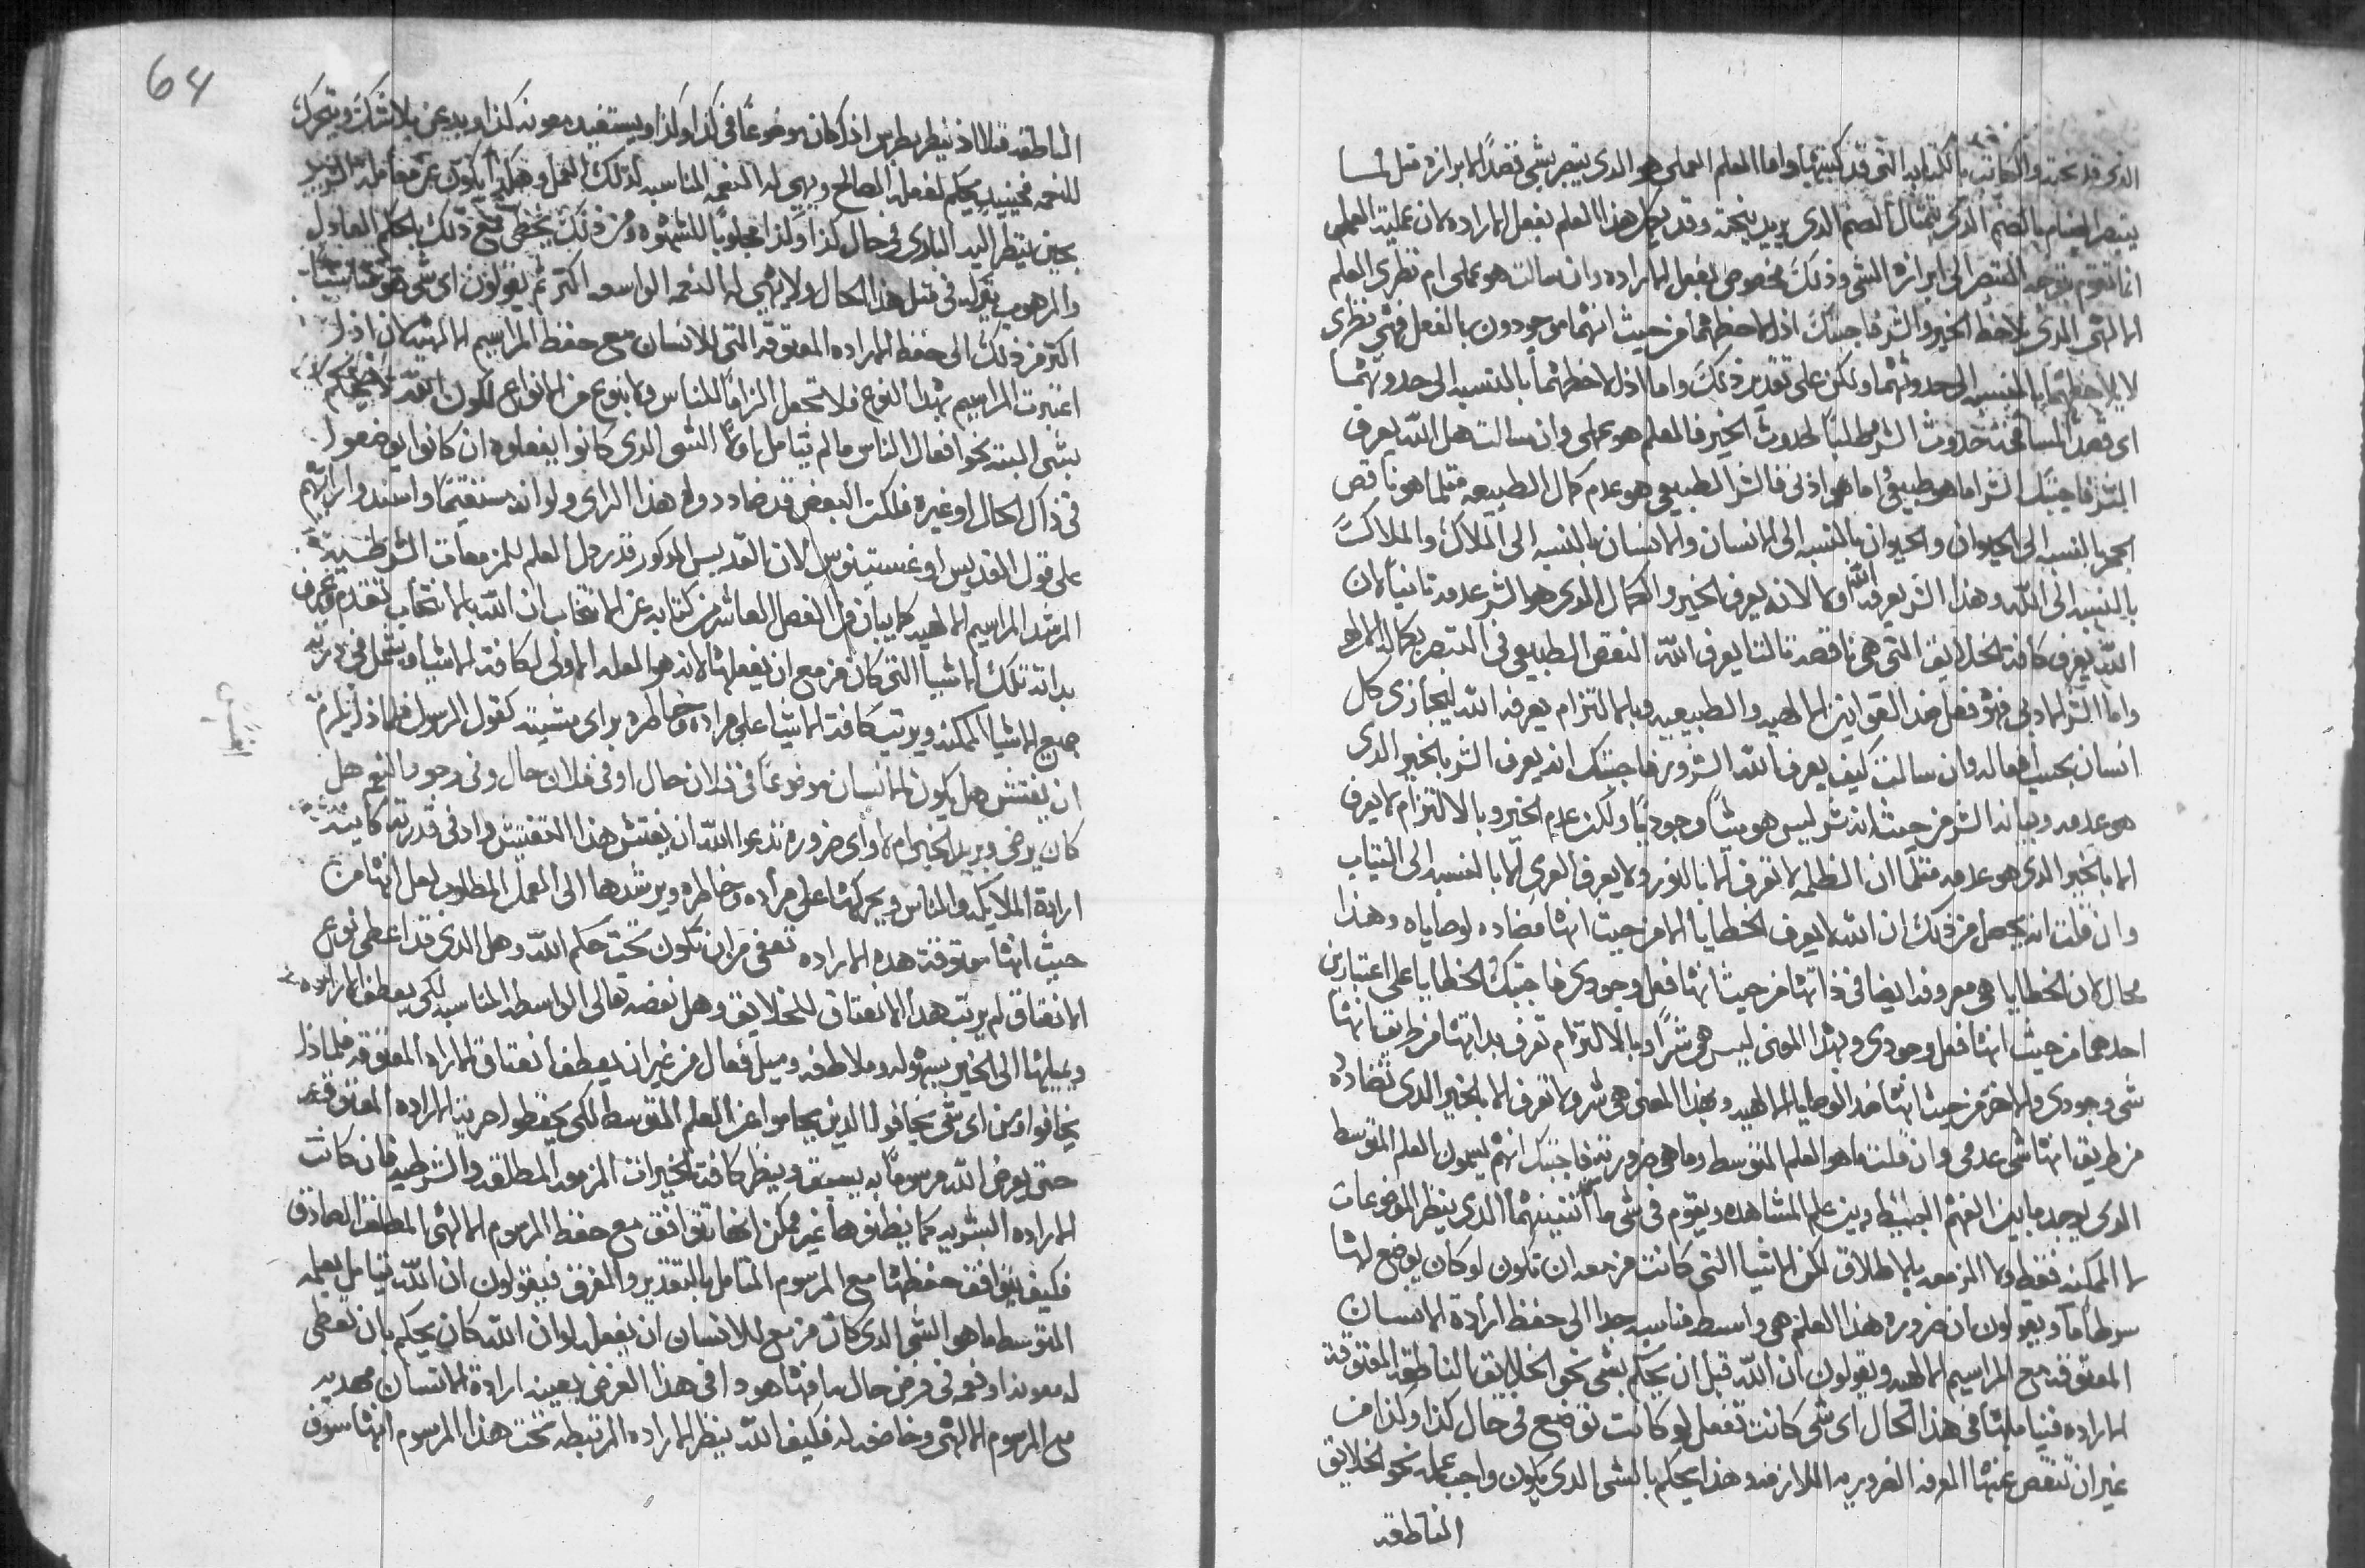 الذي قد نحته والكاتب بالكتابه التي قد كتبها واما العلم العملي هو الذي يتبصر بشي قصدًا لابرازه مثل لما
يتبصر الصنام بالصنم الذي يمثال الصنم الذي يريد ينحته وقد يكمل هذا العلم بفعل الاراده لان عملية العلم
انما تقوم بتوجه التبصر الى ابرازه الشي وذلك مخصوص بفعل الاراده وان سالت هو عملي ام نظري العلم
الالهي الذي يلاحظ الخير والشر فاجبتك اذا لاحظهما من حيث انهما موجودون بالفعل فهي نظري
لا يلاحظهما بالنسبه الى حدوثهما ولكن على تقدير ذلك واما اذا لاحظهما بالنسبه الى حدوثهما
اي قصد المسامحه حدوث الشر مطلبًا لحدوث الخير فالعلم هو عملي وان سالت هل الله يعرف
الشر فاجبتك الشر اما هو طبيعي اما هو ادني فالشر الطبيعي هو عدم كمال الطبيعه مثلما هو ناقص
الحجر بالنسبه الى الحيوان والحيوان بالنسبه الى الانسان والانسان بالنسبه الى الملاك والملاك
بالنسبه الى الله وهذا الشر يعرفه الله اولا لانه يعرف الخير والكمال الذي هو الشر عدمه ثانيا لان
الله يعرف كافة الخلايق التي هي ناقصه ثالثا يعرف الله النقص الطبيعي في التبصر بكماله الالهي
واما الشر الادبي فهو فعل ضد القوانين الالهيه والطبيعيه وبالالتزام يعرفه الله ليجازي كل
انسان بحسب اعماله وان سالت كيف يعرف الله الشرور فاجبتك انه يعرف الشر بالخير الذي
هو عدمه وبيانه الشر من حيث انه شر ليس هو شيًا وجوديًا ولكن عدم الخير وبالالتزام لا يعرف
الا بالخير الذي هو عدمه مثلما ان الظلمه لا تعرف الا بالنور ولا يعرف العري الا بالنسبه الى الثياب
وان قلت انه يحصل من ذلك ان الله لا يعرف الخطايا الا من حيث انها مضاده لوصاياه وهذا
محال لان الخطايا هي معروفه ايضا في ذاتها من حيث انها فعل وجودي فاجبتك الخطايا على اعتبارين
احدهما من حيث انها فعل وجودي وبهذا المعنى ليس هي شرًا وبالالتزام تعرف بذاتها من طريق انها
شي وجودي والاخر من حيث انها ضد الوصايا الالهيه وبهذا المعنى هي شر ولا تعرف الا بالخير الذي تضاده
من طريق انها شي عدمي وان قلت ما هو العلم المتوسط وما هي ضرورته فاجبتك انهم يسمون العلم المتوسط
الذي يوجد ما بين الفهم البسيط وبين علم المشاهده ويقوم في شي ما اثنينهما الذي ينظر الموضوعات
لا الممكنه فقط ولا المزمعه بالاطلاق لكن الاشيا التي كانت مزمعه ان تكون لو كان يوضع لها
شرطًا ما ويقولون ان ضرورة هذا العلم هي واسطه مناسبه جدا الى حفظ ارادة الانسان
المعتوقه مع المراسيم الالهيه ويقولون ان الله قبل ان يحكم بشي نحو الخلايق الناطقه المعتوقة
الاراده فيتاملها في هذا الحال اي شي كانت تفعل لو كانت توضع في حال كذا وكذا من
غير ان تنقص عنها المعرفه الضروريه اللازمه وهذا يحكم بالشي الذي يكون واجب عمله نحو الخلايق
الناطقه
64
الناطقه مثلا اذ ينظر بطرس اذا كان موضوعًا في كذا وكذا ويستفيد معونه كذا وبدعوي بلا شك ويتحرك
للنعمه فحينيذ يحكم لفعله الصالح ويهيي له النعمه المناسبه لذلك العمل وهكذا يكون عن معاملة الشرير
بحين ينظر اليه الباري في حال كذا وكذا مجلوبًا للشهوه ومن ذلك يخطي فمع ذلك بالحكم العادل
والمرهوب يتركه في مثل هذا الحال ولا يهيي له النعمه الواسعه اكثر ثم يقولون اي شي هو مناسبًا
اكثر من ذلك الى حفظ الاراده المعتوقه التي للانسان مع حفظ المراسيم الالهيه لان اذا
اعتبرت المراسيم بهذا النوع فلا تحمل الزامًا للناس ولا بنوع من الانواع لكون الله لا يحكم
بشي البته نحو افعال الناس ما لم يتامل اولا الشي الذي كانوا يفعلوه ان كانوا يوضعوا
في ذاك الحال او غيره فلكن البعض قد ضاددوا هذا الراي ولو انه مستقيمًا واسندوا رايهم
على قول القديس اوغسطينوس لان القديس المذكور قد رذل العلم للمزمعات الشرطية
المرشد المراسيم الالهيه كما يبان في الفصل العاشر من كتابه عن الانتخاب ان الله بالانتخاب تقدم وعرف
بذاته تلك الاشيا التي كان مزمع ان يفعلها لانه هو العله الاولى لكافة الاشيا ويشمل في
جميع الاشيا الممكنه ويرتب كافة الاشيا على مراده وخاطره براي مشيته كقول الرسول فلماذا يلزم
ان يفتش هل يكون الانسان موضوعًا في فلان حال او في فلان حال وفي وجود النعم هل
كان يرضي ويريد الخير ام لا واي ضروره تدعوا الله ان يفتش هذا التفتيش واذ في قدرته كاينة
ارادة الملايكه والناس ويحركها على مراده وخاطره ويرشدها الى العمل المطلوب لعل انها من
حيث انها معتوقة هذه الاراده تعفى من ان تكون تحت حكم الله وهل الذي قد اعطى نوع
الانعتاق لم يرتب هذا الانعتاق للخلايق وهل نقصه تعالى الواسطه المناسبه لكي يعطف الاراده
ويميلها الى الخير بسهوله وملاطفه وميل فعال من غير ان يعطف انعتاق الاراده المعتوقه فلماذا
يخافوا ومن اي شي يخافوا الذين يحاموا عن العلم المتوسط لكي يحفظوا حرية الاراده المعتوقه
حتى يعرض الله مرسومًا به يسبق وينظر كافة الخيرات المزمعه المطلقه والشرطيه فان كانت
الاراده البشريه كما يظنوها غير ممكن انها تتوافق مع حفظ المرسوم الالهي المطلق الصادق
فكيف يتوافق حفظها مع المرسوم المتامل بالتقدير والفرض فيقولون ان الله يتامل بعلمه
المتوسط ما هو الشي الذي كان مزمع للانسان ان يفعل لو ان الله كان يحكم بان يعطي
له معونه او نعمه في فرض حال ما فها هوذا في هذا الفرض بعينه ارادة الانسان مهديه
مع المرسوم الالهي وخاضعه له فكيف الله ينظر الاراده المرتبطه تحت هذا المرسوم انها سوف